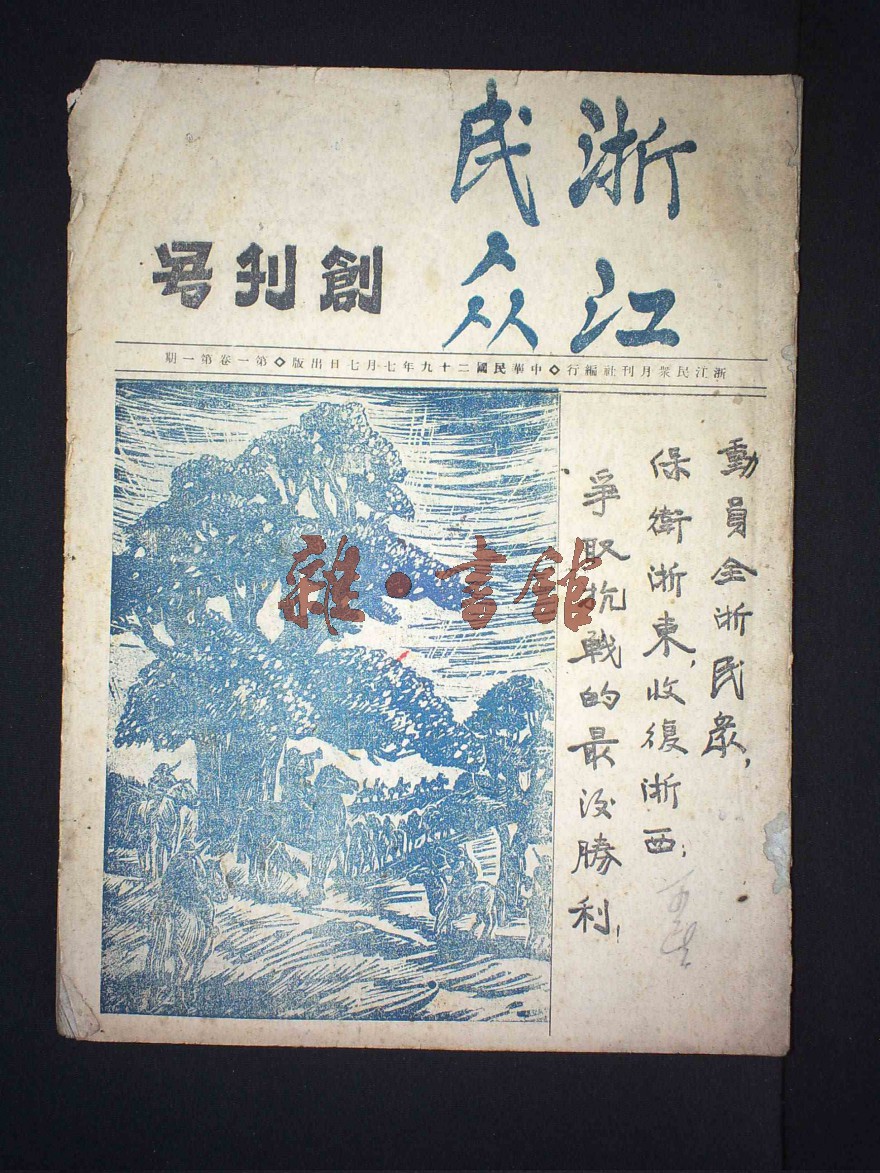 浙江
民众
創刊号
浙江民衆月刊社編行◆中華民國二十九年七月七日出版◆第一卷第一期
動員全浙民衆，
保衛浙東，收復浙西；
爭取抗戰的最后勝利！
雜·書館